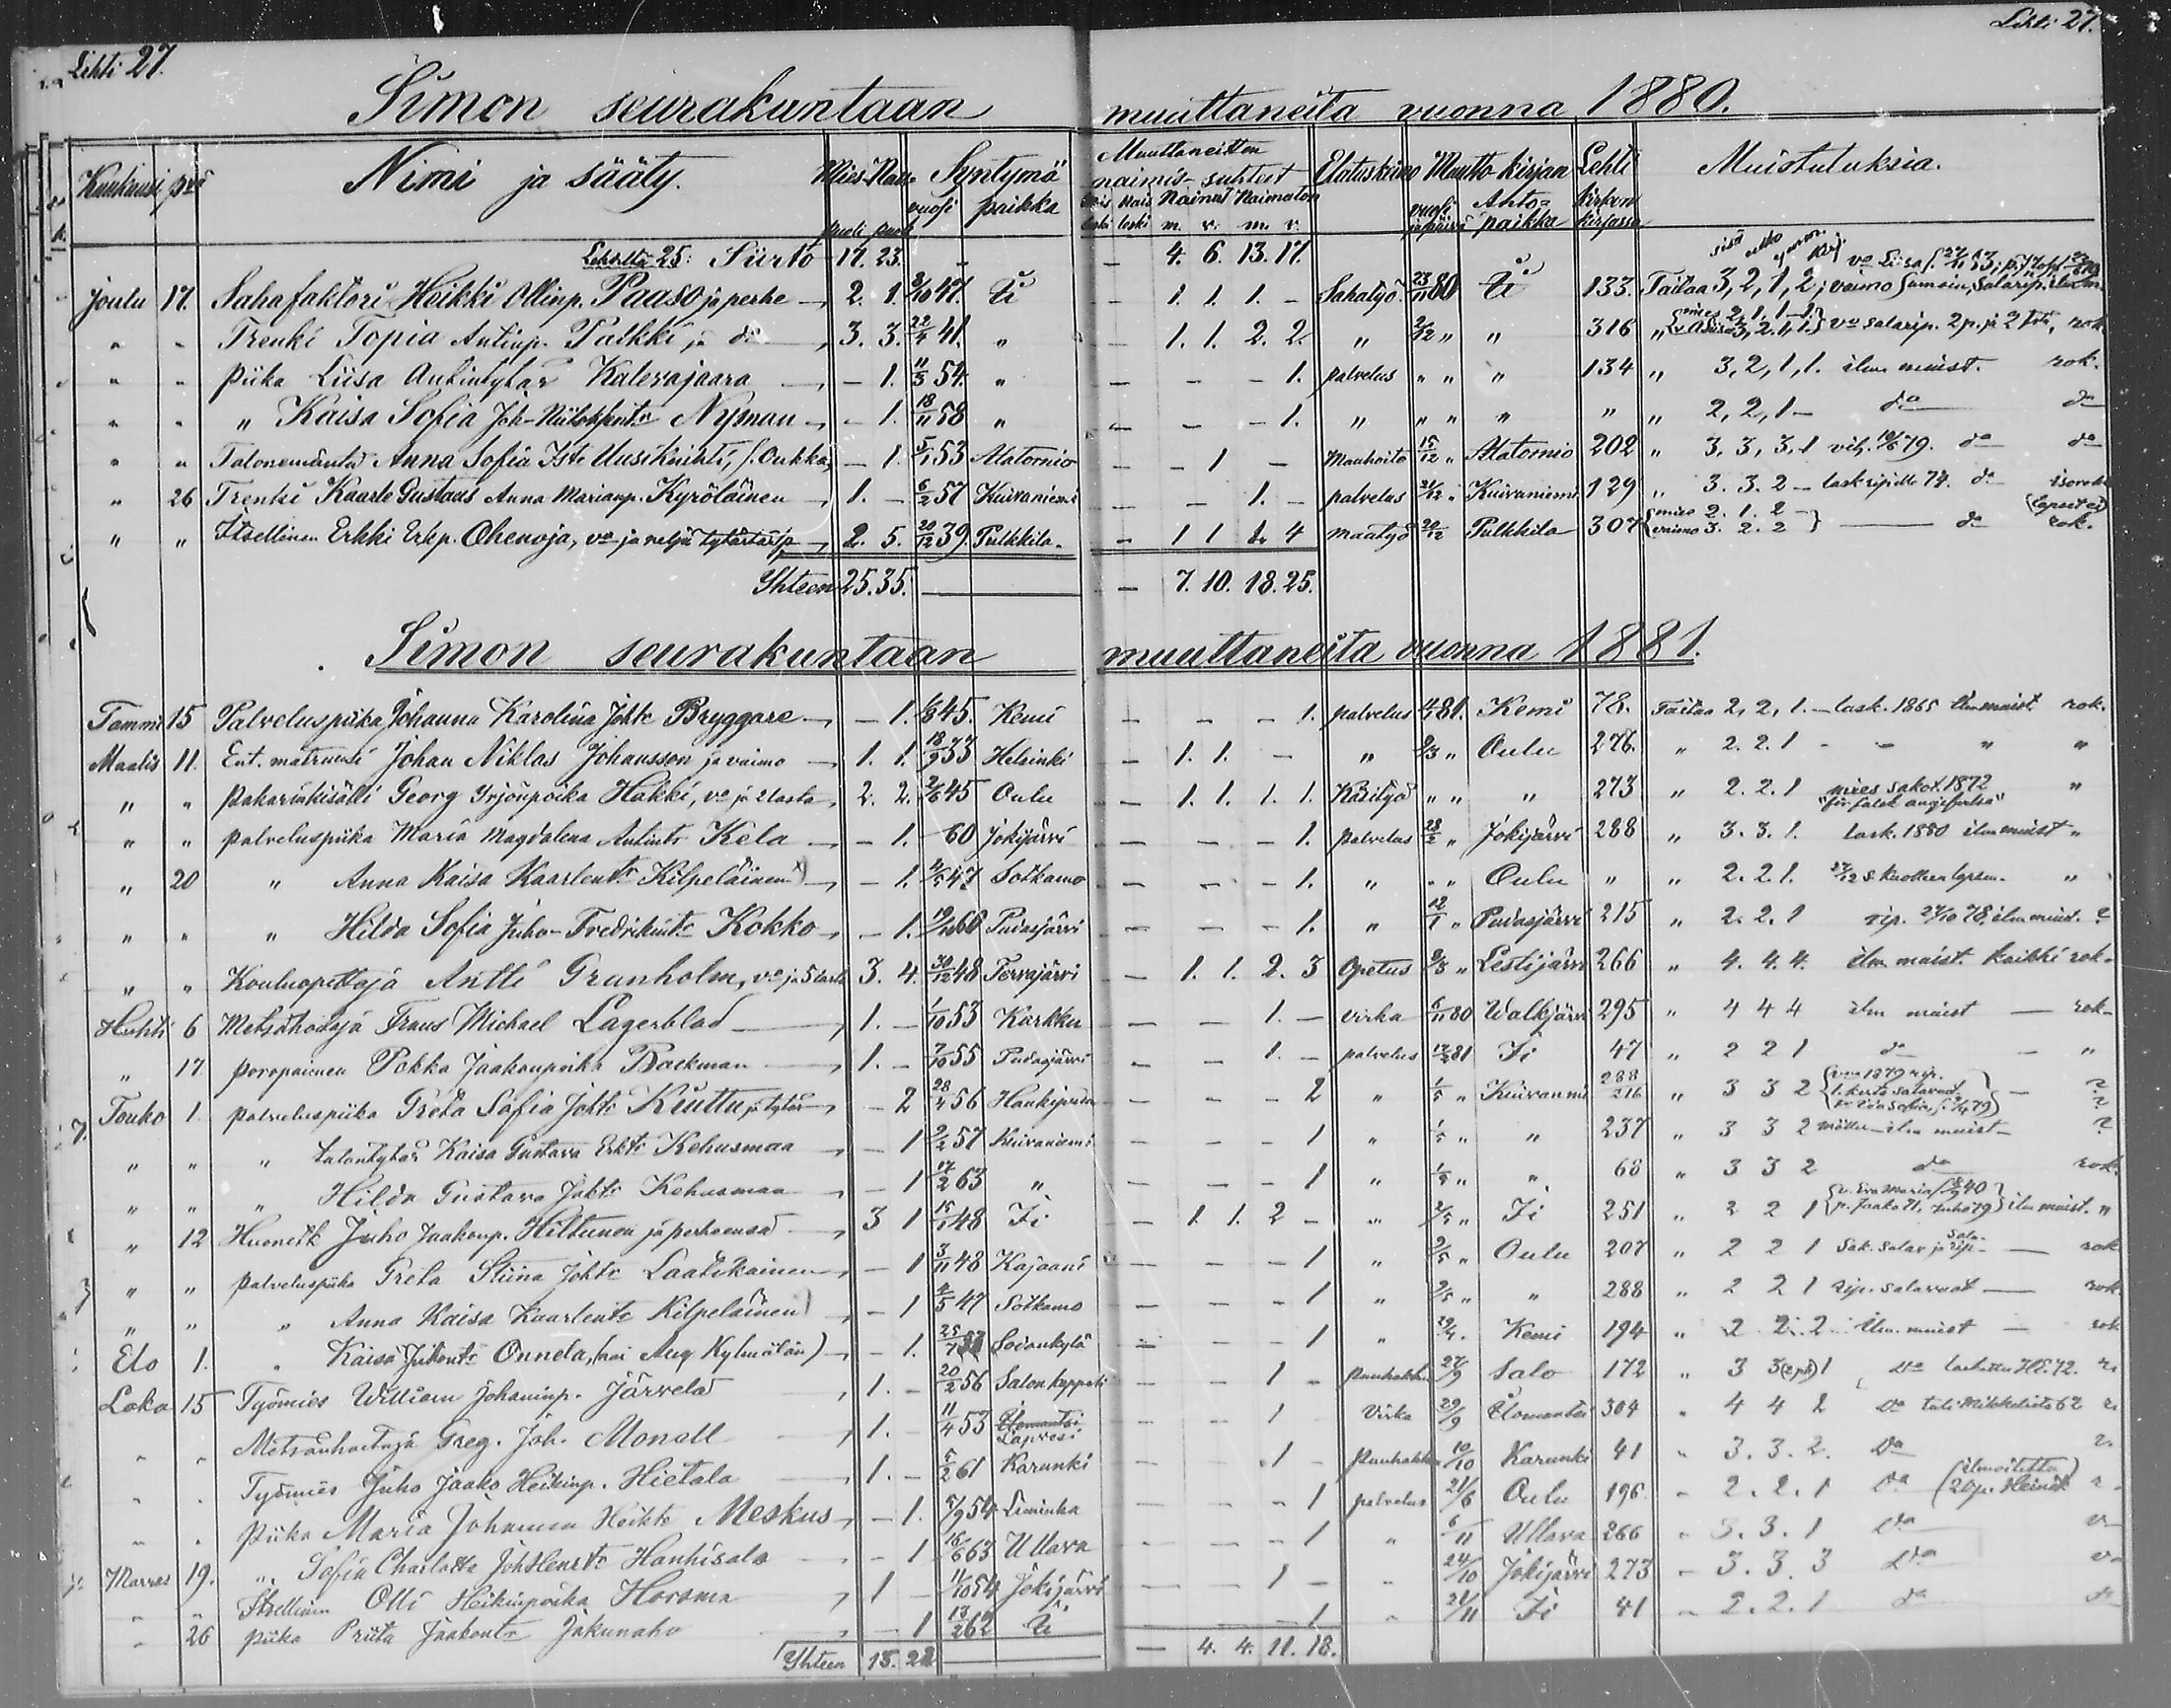 Lehti 27. Lehti 27.
Simon seurakuntaan muuttaneita vuonna 1880.
Kuukausi pvä Nimi ja sääty. Mies Nais puoli puoli Syntymä vuosi paikka Muuttaneitten naimis-suhteet Mies leski Nais leski Nainut m. v. Naimaton m. v. Elatuskeino Muutto-kirjan vuosi ja päivä Anto-paikka Lehti kirkonkirjassa Muistutuksia.
Lehdeltä 25: Siirto 17. 23. - - 4. 6. 13. 17.
Joulu 17. Sahafaktori Heikki Ollinp. Paaso ja perhe 2. 1. 47. Ii - 1. 1. 1. - Sahatyö 23/11 80 Ii 133. Taitaa 3, 2, 1, 2; vaimo samoin,
" " Trenki Topia Antinp. Palkki ja do 3. 3. 22/4 41. " - 1. 1. 2. 2. " 2/12 " " 316 " mies 2, 1, 1 salarip. 2 p. ja 2 rok
" " Piika Liisa Antintytär Kalevajaara - 1. 11/3 54. " - - - - 1. palvelus " " " 134 " 3, 2, 1, 1. ilm. muist. rok.
" " " Kaisa Sofia Joh- Nyman - 1. 18/11 58 " - - - - 1. " " " " " " 2, 2, 1 - do do
" " Talonemäntä Anna Sofia Uusikaihti, - 1. 5/1 53 Alatornio - - 1 - Maanhoito 15/12 " Alatornio 202 " 3, 3, 3, 1 vih. 79. do do
" 26 Trenki Kaarle Gustaus Anna Marianp. Kyröläinen 1. - 6/2 57 Kuivaniemi - - - 1. - palvelus 21/12 " Kuivaniemi 129 " 3. 3. 2 - lask ripille 74. do
" " Itsellinen Erkki Erkp. Ohenoja, vo ja neljä tytärtä 2. 5. 20/12 39. Pulkkila - 1 1 1. 4 maatyö 20/12 Pulkkila 307 mies 2. 1. 2 - vaimo 3. 2. 2 do rok.
Yhteen 25. 35. - - 7. 10. 18. 25.
Simon seurakuntaan muuttaneita vuonna 1881.
Tammi 15 Palveluspiika Johanna Karolina Joht. Bryggare - 1. 45. Kemi - - - - 1. palvelus 81. Kemi 78. Taitaa 2, 2, 1. - lask. 1865 ilm muist. rok.
Maalis 11. Ent. matruusi Johan Niklas Johansson ja vaimo 1. 1. 18/9 33 Helsinki - 1. 1. - " 2/3 " Oulu 276. " 2. 2. 1 - - " "
" " Pakarinkisälli Georg Yrjönpoika Hakki, vo ja 2 lasta 2. 2. 45 Oulu - 1. 1. 1. 1. Käsityö " " " 273 " 2. 2. 1 mies sakot. 1872 "för falsk angifvelse" "
" " Palveluspiika Maria Magdalena Antintr Kela - 1. - 60 Jokijärvi - - - - 1. palvelus 28/2 " Jokijärvi 288 " 3. 3. 1. lask. 1880 ilm muist "
" 20 " Anna Kaisa Kaarlentr Kilpeläinen x) - 1. 2/5 47 Sotkamo - - - - 1. " " " Oulu " " 2. 2. 1. kuolleen lapsen. "
" " " Hilda Sofia Juho-Fredrikintr Kokko - 1. 66 Pudasjärvi - - - - 1. " 12/1 " Pudasjärvi 215 " 2. 2. 1 rip. 27/10 78, ilm muist. ?
" " Kouluopettaja Antti Granholm, vo ja 5 lasta 3. 4. 30/12 48 Terrajärvi - 1. 1. 2. 3 Opetus " Lestijärvi 266 " 4. 4. 4. ilm. muist. kaikki rok.
Huhti 6 Metsähoitaja Frans Michael Lagerblad 1. - 1/10 53 Karkku - - - 1. - virka 6/11 80 Walkjärvi 295 " 4 4 4 ilm muist - rok.
" 17. Poropaimen Pekka Jaakonpoika Backman 1. - 7/10 55 Pudasjärvi - - - 1. - palvelus 81 Ii 47 " 2 2 1 do - "
Touko 1. palveluspiika Greta Sofia Joht. Kiuttu ja tytär - 2 28/4 56 Haukipudas - - - - 2 " 1/5 " Kuivanmi 288/216 " 3 3 2 1879 rip. - ?
" " " talontytär Kaisa Gustava Erkt Kehusmaa - 1 2/2 57 Kuivaniemi - - - - 1 " 1/5 " " 237 " 3 3 2 ilm muist - ?
" " " Hilda Gustava Joht Kehusmaa - 1 17/2 63 " - - - - 1 " 1/5 " " 68 " 3 3 2 do rok.
" 12 Huonem Juho Jaakonp. Hiltunen ja perheensä 3 1 48 Ii - 1. 1. 2 - " 2/5 " Ii 251 " 2 2 1 v. Eva Maria 40 p. Jaako 71, Juho 79 ilm muist. "
" " palveluspiika Greta Stiina Joht Laatikainen - 1 3/11 48 Kajaani - - - - 1 " 2/5 " Oulu 207 " 2 2 1 Sak. salav ja rip. - rok
" " " Anna Kaisa Kaarlentr Kilpeläinen) - 1 2/5 47 Sotkamo - - - - 1 " 2/5 " " 288 " 2 2 1 rip. salavuot - rok
Elo 1. " Kaisa Juhontr Onnela, (nai Aug Kylmälän) - 1. 25/7 Sodankylä - - - - 1 " 29/4. Kemi 194 " 2 2. 2 ilm. muist - rok
Loka 15 Työmies William Johaninp. Järvelä 1. - 20/2 56 Salon kappeli - - - 1 - 27/9 Salo 172 " 3 3 1 do
" " Metsänhoitaja Greg. Joh. Monell 1. - 11/4 53 Ilomantsi - - - 1 Virka 29/9 Ilomantsi 304 " 4 4 2 do
" " Työmies Juho Jaako Heikinp. Hietala 1. - 5/2 61 Karunki - - - 1 - 10/10 Karunki 41 " 3. 3. 2. do
" " Piika Maria Johanna Heikt Meskus - 1. 54 Liminka - - - - 1 palvelus 21/6 Oulu 196 " 2. 2. 1 do
" " " Sofia Charlotta Hanhisalo - 1 63 Ullava - - - - 1 " 6/11 Ullava 266 " 3. 3. 1 do
Marras 19. Itsellinen Olli Heikinpoika Horsma 1 - 11/10 54 Jokijärvi - - - 1 - " 24/10 Jokijärvi 273 " 3. 3. 3 do
" 26 piika Priita Jaakontr Jakunaho - 1 62 Ii - - - - 1 " 21/11 Ii 41 " 2. 2. 1 do do
Yhteen 15. 22 - - 4. 4. 11. 18.